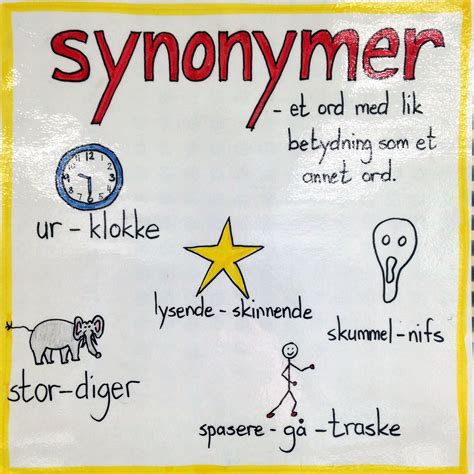 synonymer
- et ord med lik
betydning som et
annet ord.
ur - klokke
lysende - skinnende
skummel - nifs
stor - diger
spasere - gå - traske